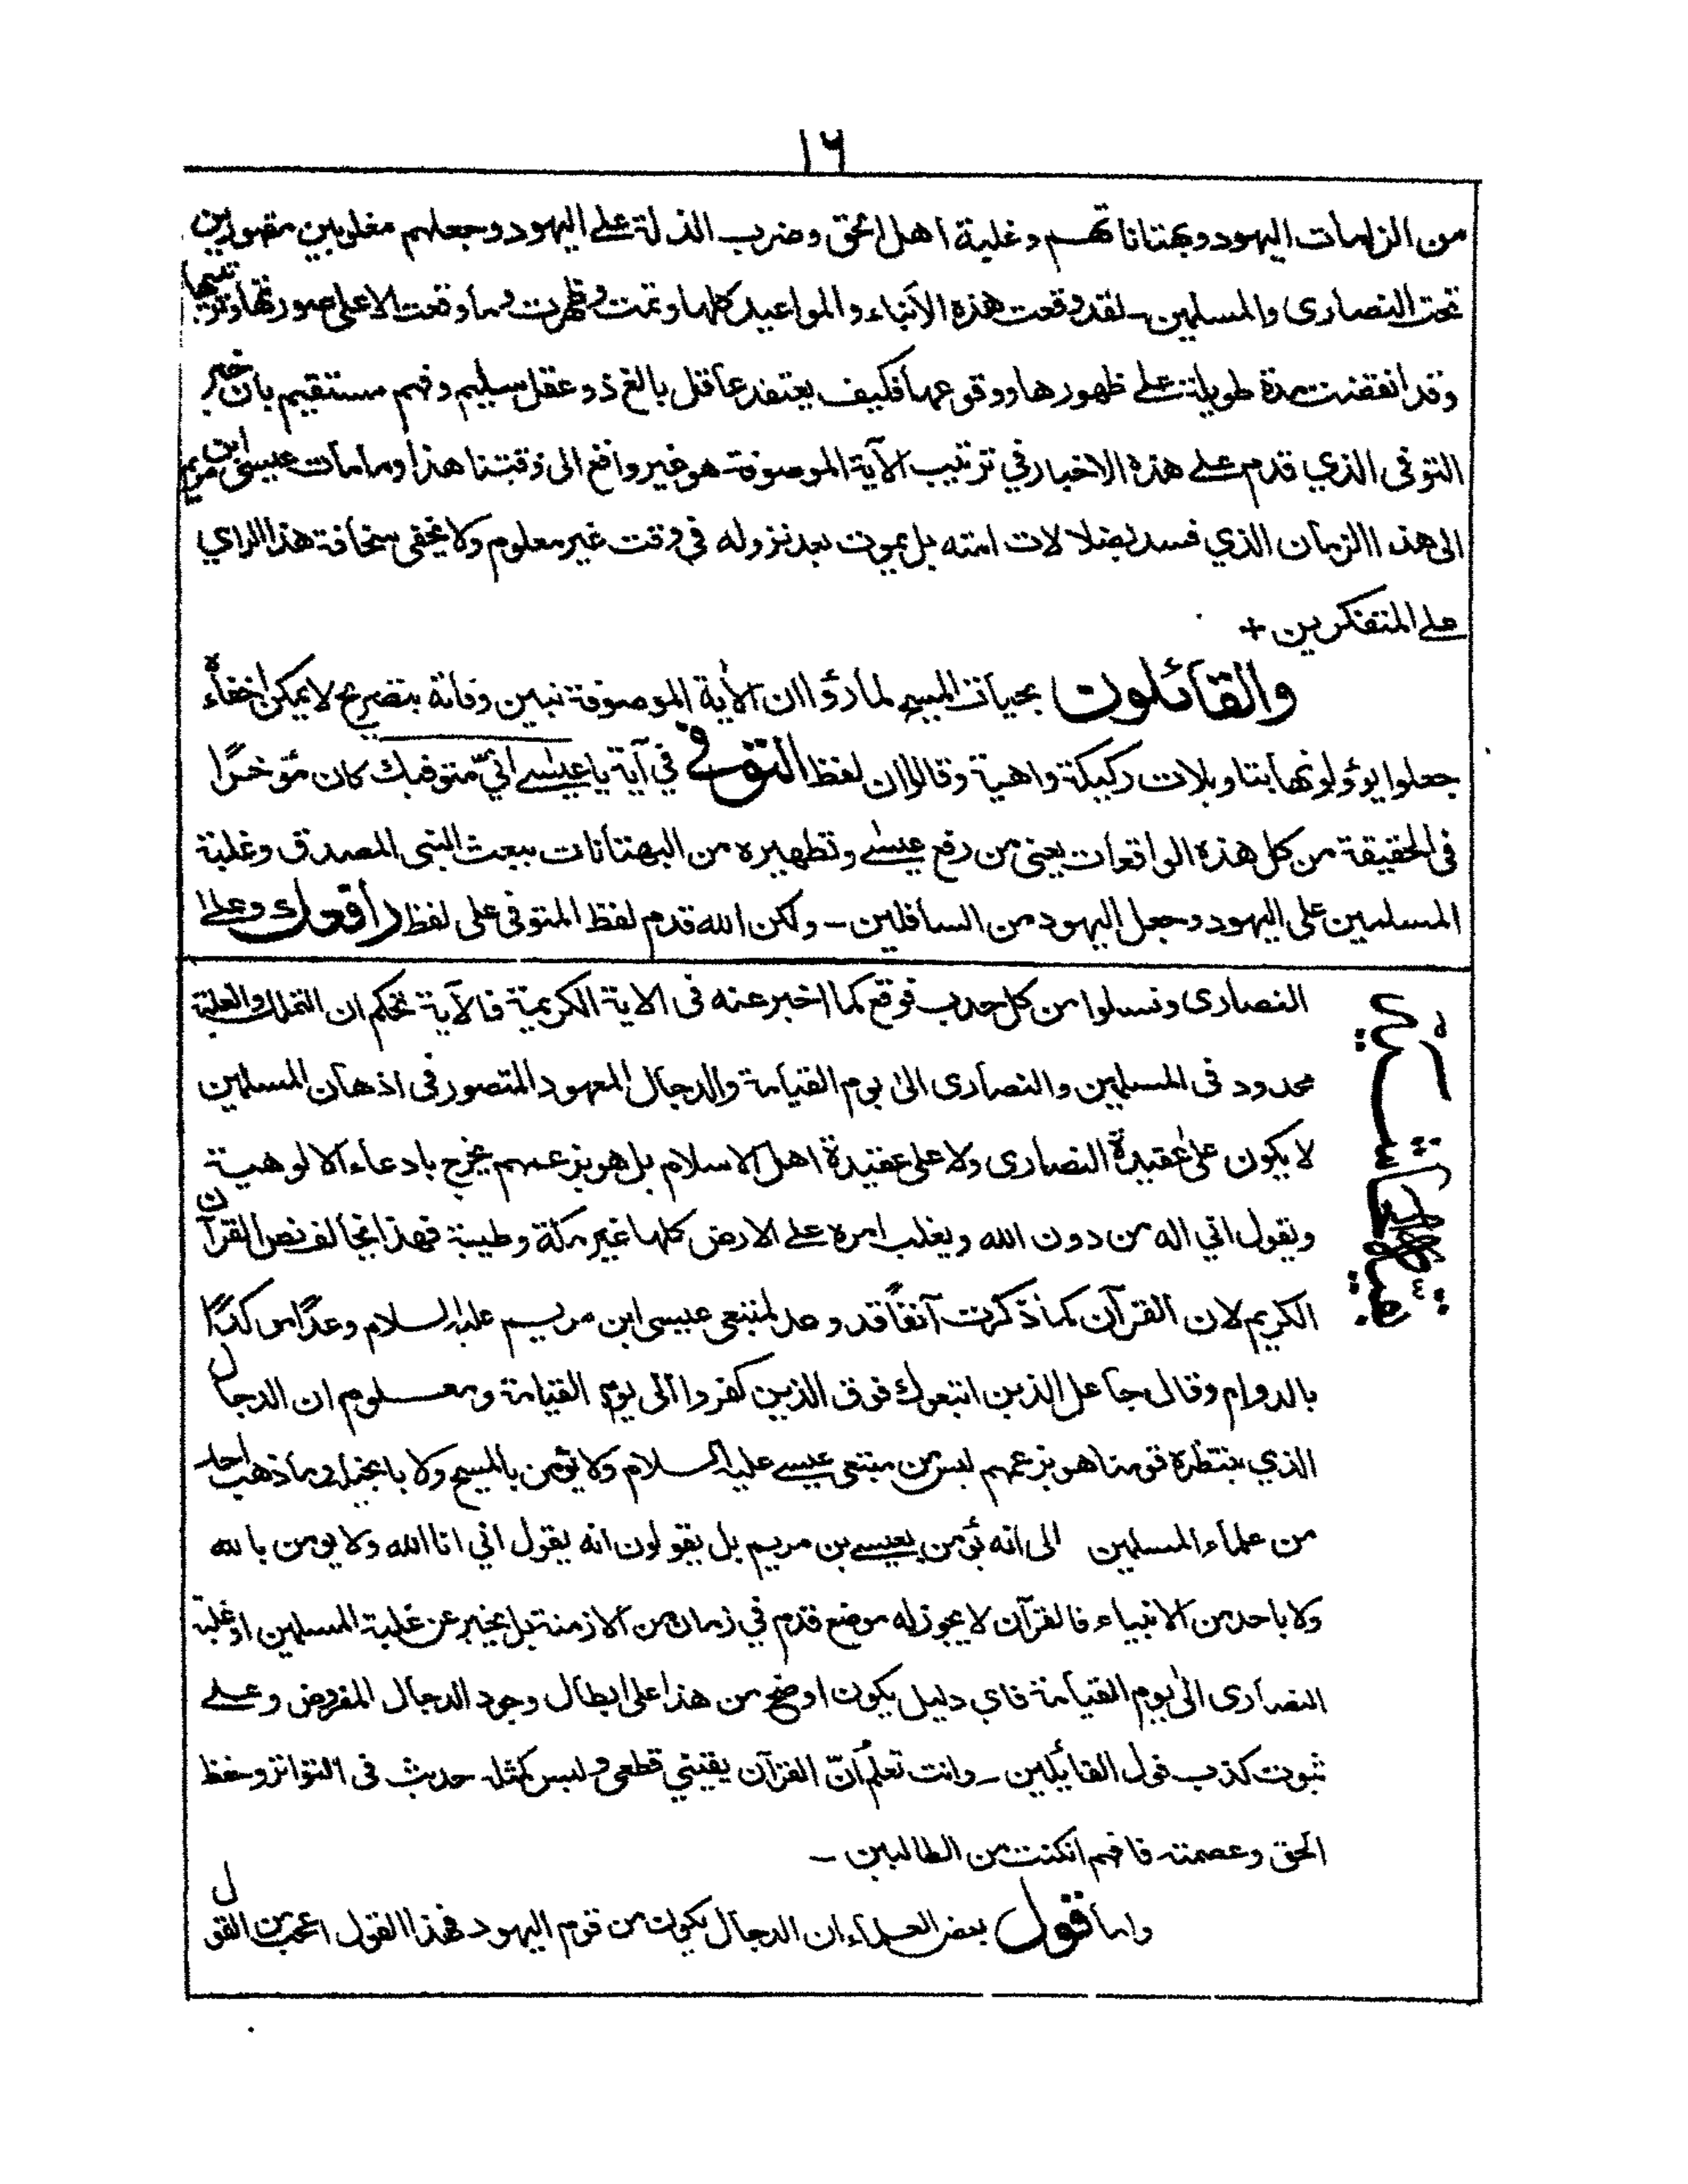 ١٦
من الزامات اليهود وبهتاناتهم وغلبة اهل الحق وضرب الذلة على اليهود وجعلهم مغلوبين مقهورين
تحت النصارى والمسلمين ـ لقد وقعت هذه الأنباء والمواعيد كلها وتمت وظهرت وما وقعت الا على صورتها وترتيبها
وقد انقضت مدة طويلة على ظهورها ووقوعها فكيف يعتقد عاقل بالغ ذو عقل سليم وفهم مستقيم بان خبر
التوفى الذي قدم على هذه الاخبار في ترتيب الآية الموصوفة هو غير واقع الى وقتنا هذا وما مات عيسى ابن مريم
الى هذا الزمان الذي فسد بضلالات امته بل يموت بعد نزوله في وقت غير معلوم ولا يخفى سخافة هذا الراي
على المتفكرين +
والقائلون بحيات المسيح لما رؤا ان الآية الموصوفة تبين وفاته بتصريح لا يمكن اخفاءه
جعلوا يؤولونها بتاويلات ركيكة واهية وقالوا ان لفظ التوفي في آية يا عيسے اني متوفيك كان مؤخرًا
فى الحقيقة من كل هذه الواقعات يعنى من رفع عيسے وتطهيره من البهتانات ببعث النبى المصدق وغلبة
المسلمين على اليهود وجعل اليهود من السافلين ـ ولكن الله قدم لفظ المتوفى على لفظ رافعك وعلى
النصارى ونسلوا من كل حدب فوقع كما اخبر عنه فى الاية الكريمة فالآية تحكم ان التملك والغلبة
محدود فى المسلمين والنصارى الى يوم القيامة والدجال المعهود المتصور فى اذهان المسلمين
لا يكون على عقيدة النصارى ولا على عقيدة اهل الاسلام بل هو بزعمهم يخرج بادعاء الالوهية
ويقول اني اله من دون الله ويغلب امره على الارض كلها غير مكة وطيبة فهذا يخالف نص القرآن
الكريم لان القرآن كما ذكرت آنفاً قد وعد لمتبعى عيسى ابن مريم عليه السلام وعدًا موكدًا
بالدوام وقال جاعل الذين اتبعوك فوق الذين كفروا الى يوم القيامة ومعلوم ان الدجال
الذي ينتظره قومنا هو بزعمهم ليس من متبعى عيسے عليه السلام ولا يؤمن بالمسيح ولا بانجيله وما ذهب احد
من علماء المسلمين الى انه يؤمن بعيسے بن مريم بل يقولون انه يقول اني انا الله ولا يومن بالله
ولا باحد من الانبياء فالقرآن لا يجوز له موضع قدم في زمان من الازمنة بل يخبر عن غلبة المسلمين او غلبة
النصارى الى يوم القيامة فاي دليل يكون اوضح من هذا على ابطال وجود الدجال المفروض وعلى
ثبوت كذب قول القائلين ـ وانت تعلم أنّ القرآن يقيني قطعى وليس كمثله حديث فى التواتر وحفظ
الحق وعصمته فافهم ان كنت من الطالبين ـ
واما قول بعض العلماء ان الدجال يكون من قوم اليهود فهذا القول اعجب من القول